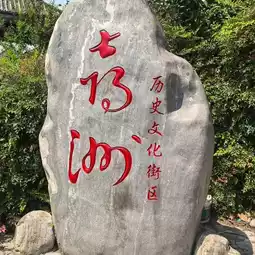 喜洲
历史文化街区